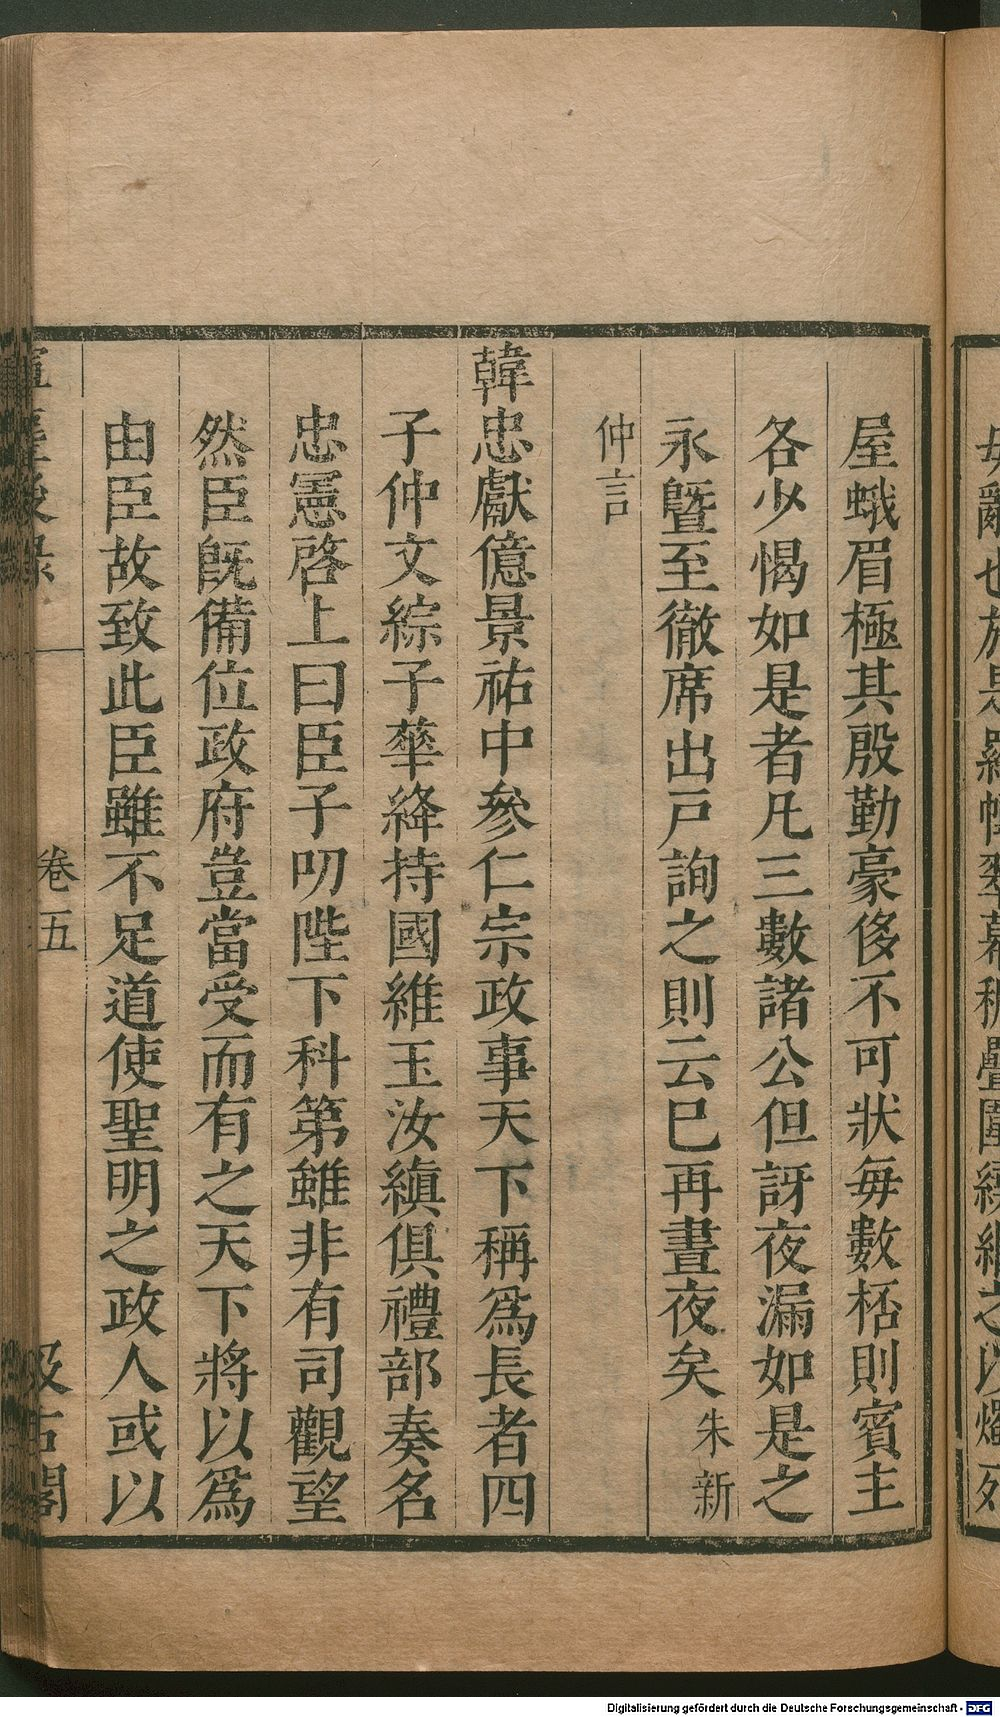 屋蛾眉極其殷勤豪侈不可狀每數桮則賓主
各少愒如是者凡三數諸公但訝夜漏如是之
永暨至徹席出戸詢之則云巳再晝夜矣朱新
仲言
韓忠獻億景祐中參仁宗政事天下稱爲長者四
子仲文綜子華絳持國維玉汝縝俱禮部奏名
忠憲啓上曰臣子叨陛下科第雖非有司觀望
然臣既備位政府豈當受而有之天下將以爲
由臣故致此臣雖不足道使聖明之政人或以
卷五
汲古閣
Digitalisierung gefördert durch die Deutsche Forschungsgemeinschaft - DFG